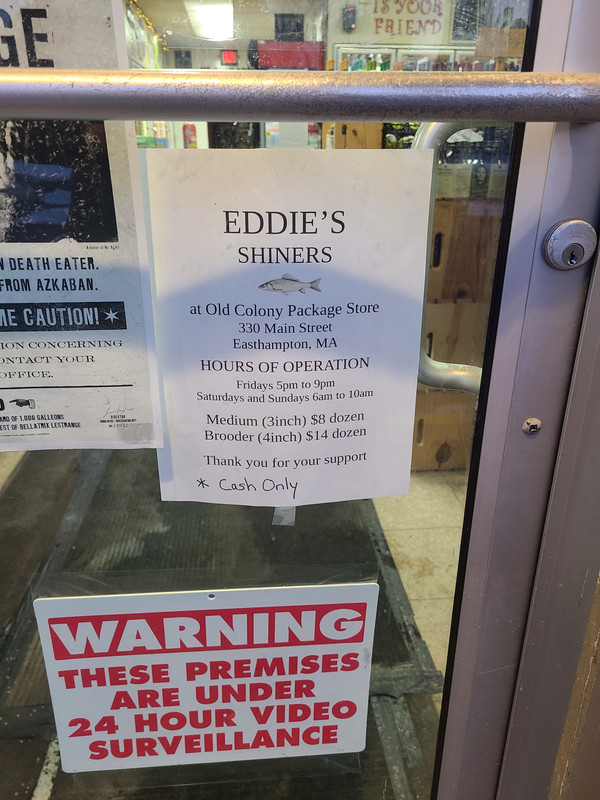 IS YOUR
FRIEND
GE
N DEATH EATER.
FROM AZKABAN.
ME CAUTION! *
ION CONCERNING
ONTACT YOUR
OFFICE.
ARD OF 1.000 GALLEONS
EST OF BELLATRIX LESTRANGE
EDDIE'S
SHINERS
at Old Colony Package Store
330 Main Street
Easthampton, MA
HOURS OF OPERATION
Fridays 5pm to 9pm
Saturdays and Sundays 6am to 10am
Medium (3inch) $8 dozen
Brooder (4inch) $14 dozen
Thank you for your support
* Cash Only
WARNING
THESE PREMISES
ARE UNDER
24 HOUR VIDEO
SURVEILLANCE